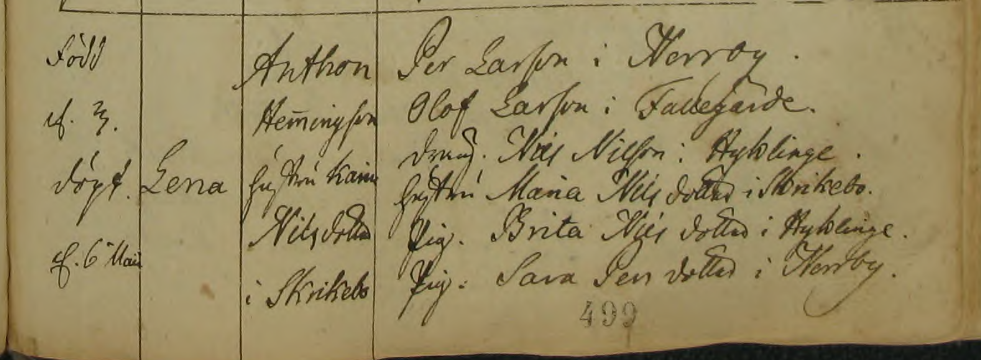 Född
d. 3.
döpt.
d. 6 Maii
Lena
Anthon
Hem̄ingson
hustru Karin
Nilsdotter
i Skrikebo
Per Larson i Herroby.
Olof Larson i Fallegårde.
dräng. Nils Nilson i Hyklinge.
hustru Maria Nils dotter i Skrikebo.
Pig. Brita Nils dotter i Hyklinge.
Pig. Sara Pers dotter i Herroby.
499